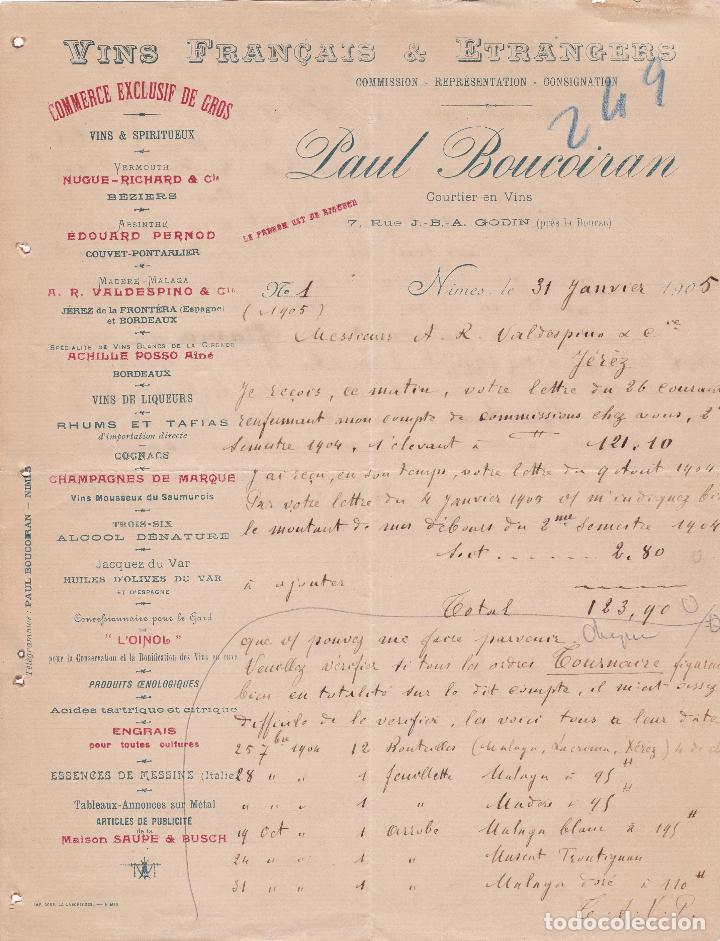 VINS FRANÇAIS & ETRANGERS
COMMISSION - REPRÉSENTATION - CONSIGNATION
249
Paul Boucoiran
Courtier en Vins
7, Rue J.-B.-A. GODIN (près la Bourse)
COMMERCE EXCLUSIF DE GROS
VINS & SPIRITUEUX
VERMOUTH
NUGUE-RICHARD & Cie
BÉZIERS
ABSINTHE
ÉDOUARD PERNOD
COUVET-PONTARLIER
MADÈRE-MALAGA
A. R. VALDESPINO & Cie
JÉREZ de la FRONTÉRA (Espagne)
et BORDEAUX
SPÉCIALITÉ DE VINS BLANCS DE LA GIRONDE
ACHILLE POSSO Aîné
BORDEAUX
VINS DE LIQUEURS
RHUMS ET TAFIAS
d'importation directe
COGNACS
CHAMPAGNES DE MARQUE
Vins Mousseux du Saumurois
TROIS-SIX
ALCOOL DÉNATURÉ
Jacquez du Var
HUILES D'OLIVES DU VAR
ET D'ESPAGNE
Concessionnaire pour le Gard
DE
"L'OINOL"
pour la Conservation et la Bonification des Vins en cuve
PRODUITS ŒNOLOGIQUES
Acides tartrique et citrique
ENGRAIS
pour toutes cultures
ESSENCES DE MESSINE (Italie)
Tableaux-Annonces sur Métal
ARTICLES DE PUBLICITÉ
de la
Maison SAUPE & BUSCH
Télégrammes : PAUL BOUCOIRAN — NIMES
LE PRÉNOM EST DE RIGUEUR
No 1
(1905)
Nimes, le 31 Janvier 1905
Messieurs A. R. Valdespino & Cie
Jéréz
Je reçois, ce matin, votre lettre du 26 courant
renfermant mon compte de commissions chez vous, 2e
Semestre 1904, s'élevant à 121,10
J'ai reçu, en son temps, votre lettre du 9 Aout 1904
Par votre lettre du 4 Janvier 1905 v/ m'indiquez bien
le montant de mes débours du 2me Semestre 1904
Soit ...... 2.80
à ajouter
Total 123,90
que v/ pouvez me faire parvenir
Veuillez vérifier si tous les ordres Tournaire figurent
bien en totalité sur le dit compte, il m'est assez
difficile de le vérifier, les voici tous à leur date
25 7bre 1904 12 Bouteilles (Malaga, Lacryma, Xérez) 4 de
28 " " 1 feuillette Malaga à 95 "
" " " 1 " Madère à 95 "
19 Oct " 1 arrobe Malaga blanc à 195 "
24 " " 1 " Muscat Frontignan
31 " " 1 " Malaga doré à 110 "
T. A. V. P.
todocoleccion
todocoleccion.net